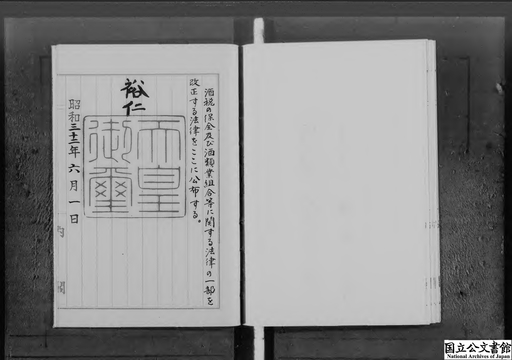 酒税の保全及び酒類業組合等に関する法律の一部を
改正する法律をここに公布する。
裕仁
天皇
御璽
昭和三十二年六月一日
内
閣
国立公文書館
National Archives of Japan